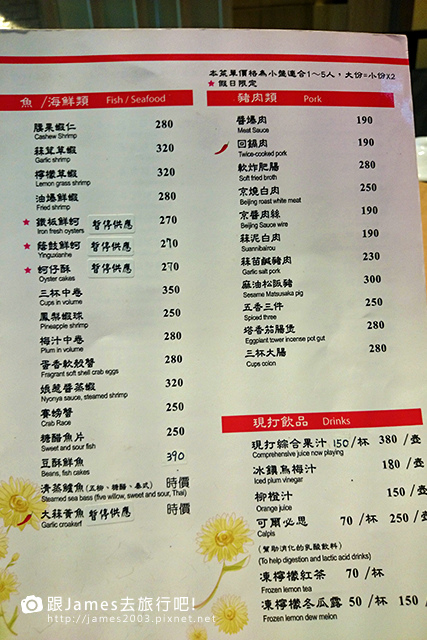 本菜單價格為小盤適合1~5人, 大份=小份X2
★ 假日限定
魚 /海鮮類 Fish / Seafood
腰果蝦仁 280
Cashew Shrimp
蒜茸草蝦 320
Garlic shrimp
檸檬草蝦 320
Lemon grass shrimp
油爆鮮蝦 280
Fried shrimp
★ 鐵板鮮蚵 暫停供應 270
Iron fresh oysters
★ 蔭豉鮮蚵 暫停供應 270
Yinguxianhe
★ 蚵仔酥 暫停供應 270
Oyster cakes
三杯中卷 350
Cups in volume
鳳梨蝦球 250
Pineapple shrimp
梅汁中卷 280
Plum in volume
蛋香軟殼蟹 280
Fragrant soft shell crab eggs
娘惹醬蒸蝦 320
Nyonya sauce, steamed shrimp
賽螃蟹 250
Crab Race
糖醋魚片 250
Sweet and sour fish
豆酥鮮魚 390
Beans, fish cakes
清蒸鱸魚 (五柳、糖醋、泰式) 時價
Steamed sea bass (five willow, sweet and sour, Thai)
大蒜黃魚 暫停供應 時價
Garlic croakerf
豬肉類 Pork
醬爆肉 190
Meat Sauce
回鍋肉 190
Twice-cooked pork
軟炸肥腸 280
Soft fried broth
京燒白肉 250
Beijing roast white meat
京醬肉絲 190
Beijing Sauce wire
蒜泥白肉 190
Suannibairou
蒜苗鹹豬肉 230
Garlic salt pork
麻油松阪豬 300
Sesame Matsusaka pig
五香三件 250
Spiced three
塔香茄腸煲 280
Eggplant tower incense pot gut
三杯大腸 280
Cups colon
現打飲品 Drinks
現打綜合果汁 150/杯 380/壺
Comprehensive juice now playing
冰鎮烏梅汁 180/壺
Iced plum vinegar
柳橙汁 150/壺
Orange juice
可爾必思 70/杯 250/壺
Calpis
(幫助消化的乳酸飲料)
(To help digestion and lactic acid drinks)
凍檸檬紅茶 70/杯
Frozen lemon tea
凍檸檬冬瓜露 50/杯 150/壺
Frozen lemon dew melon
跟James去旅行吧!
http://james2003.pixnet.net